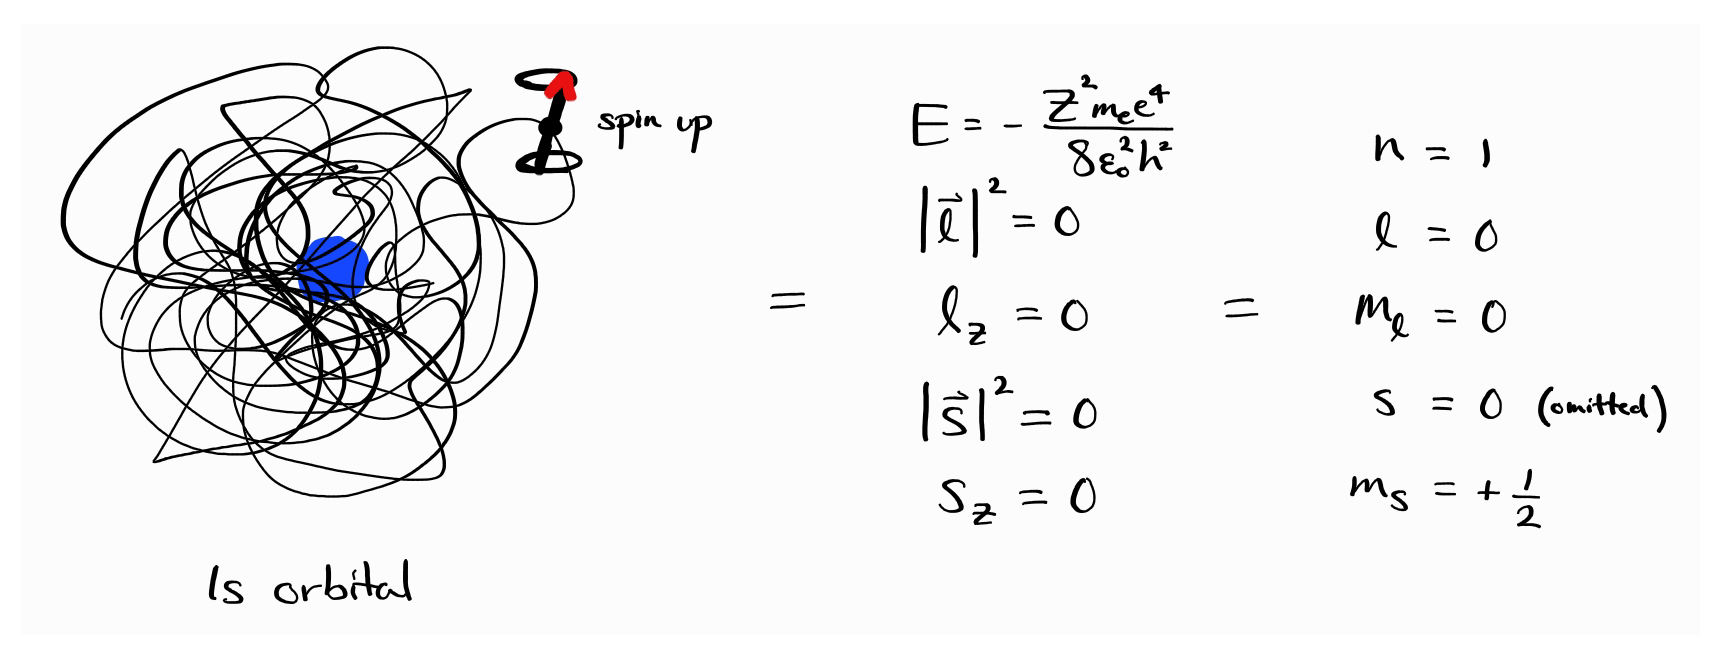 spin up
1s orbital
=
E = - Z²mₑe⁴ / 8ε₀²h²
|l⃗|² = 0
l_z = 0
|s⃗|² = 0
s_z = 0
=
n = 1
l = 0
m_l = 0
s = 0 (omitted)
m_s = + 1/2